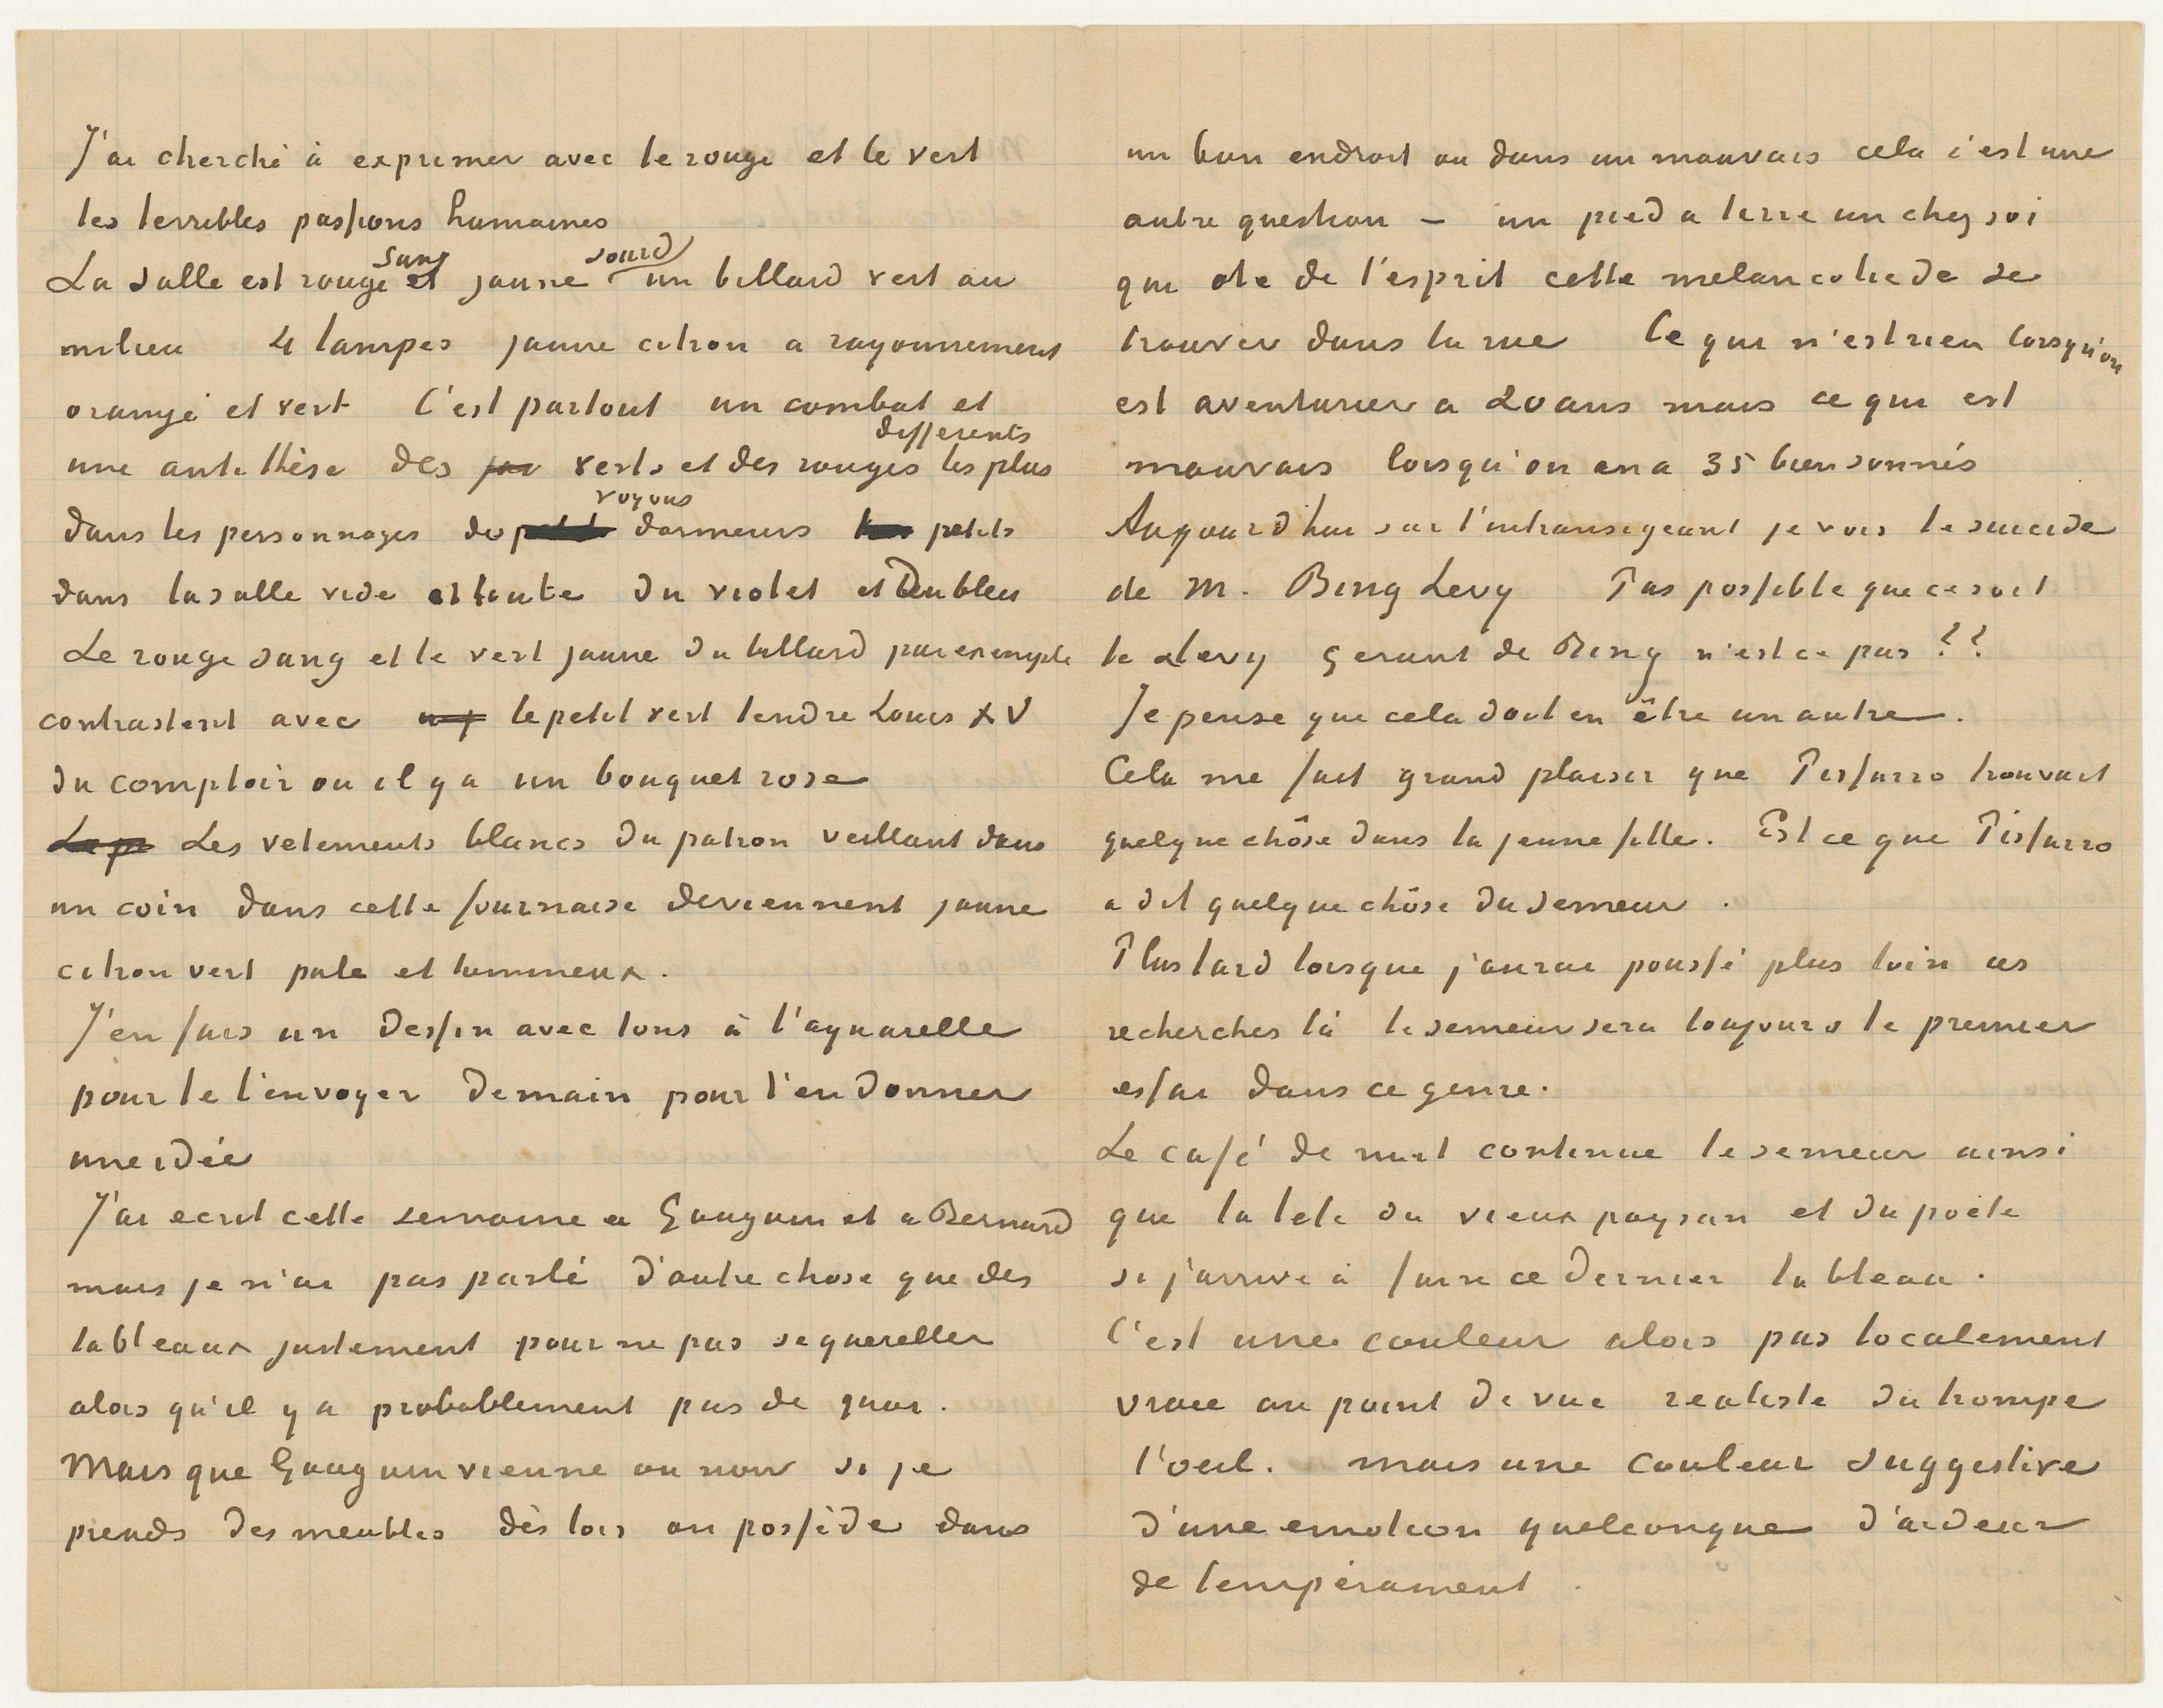 J'ai cherché à exprimer avec le rouge et le vert
les terribles passions humaines
La salle est rouge sang et jaune sourd un billard vert au
milieu 4 lampes jaune citron a rayonnement
orangé et vert C'est partout un combat et
une antithèse des verts et des rouges les plus differents
dans les personnages de voyous dormeurs petits
dans la salle vide et haute du violet et du bleu
Le rouge sang et le vert jaune du billard par exemple
contrastent avec le petit vert tendre Louis XV
du comptoir ou il y a un bouquet rose
Les vetements blancs du patron veillant dans
un coin dans cette fournaise deviennent jaune
citron vert pale et lumineux.
J'en fais un dessin avec tons à l'aquarelle
pour te l'envoyer demain pour t'en donner
une idée
J'ai ecrit cette semaine a Gauguin et a Bernard
mais je n'ai pas parlé d'autre chose que des
tableaux justement pour ne pas se quereller
alors qu'il y a probablement pas de quoi.
Mais que Gauguin vienne ou non si je
prends des meubles dès lors on possède dans
un bon endroit ou dans un mauvais cela c'est une
autre question – un pied a terre un chez soi
qui ote de l'esprit cette melancolie de se
trouver dans la rue Ce qui n'est rien lorsqu'on
est aventurier a 20 ans mais ce qui est
mauvais lorsqu'on en a 35 bien sonnés
Aujourd'hui sur l'intransigeant je vois le suicide
de M. Bing Levy Pas possible que ce soit
le Levy gerant de Bing n'est ce pas ??
Je pense que cela doit en être un autre.
Cela me fait grand plaisir que Pissarro trouvait
quelque chôse dans la jeune fille. Est ce que Pissarro
a dit quelque chôse du semeur.
Plus tard lorsque j'aurai poussé plus loin ces
recherches là le semeur sera toujours le premier
essai dans ce genre.
Le café de nuit continue le semeur ainsi
que la tete du vieux paysan et du poète
si j'arrive à faire ce dernier tableau.
C'est une couleur alors pas localement
vraie au point de vue realiste du trompe
l'oeil. mais une couleur suggestive
d'une emotion quelconque d'ardeur
de tempérament.